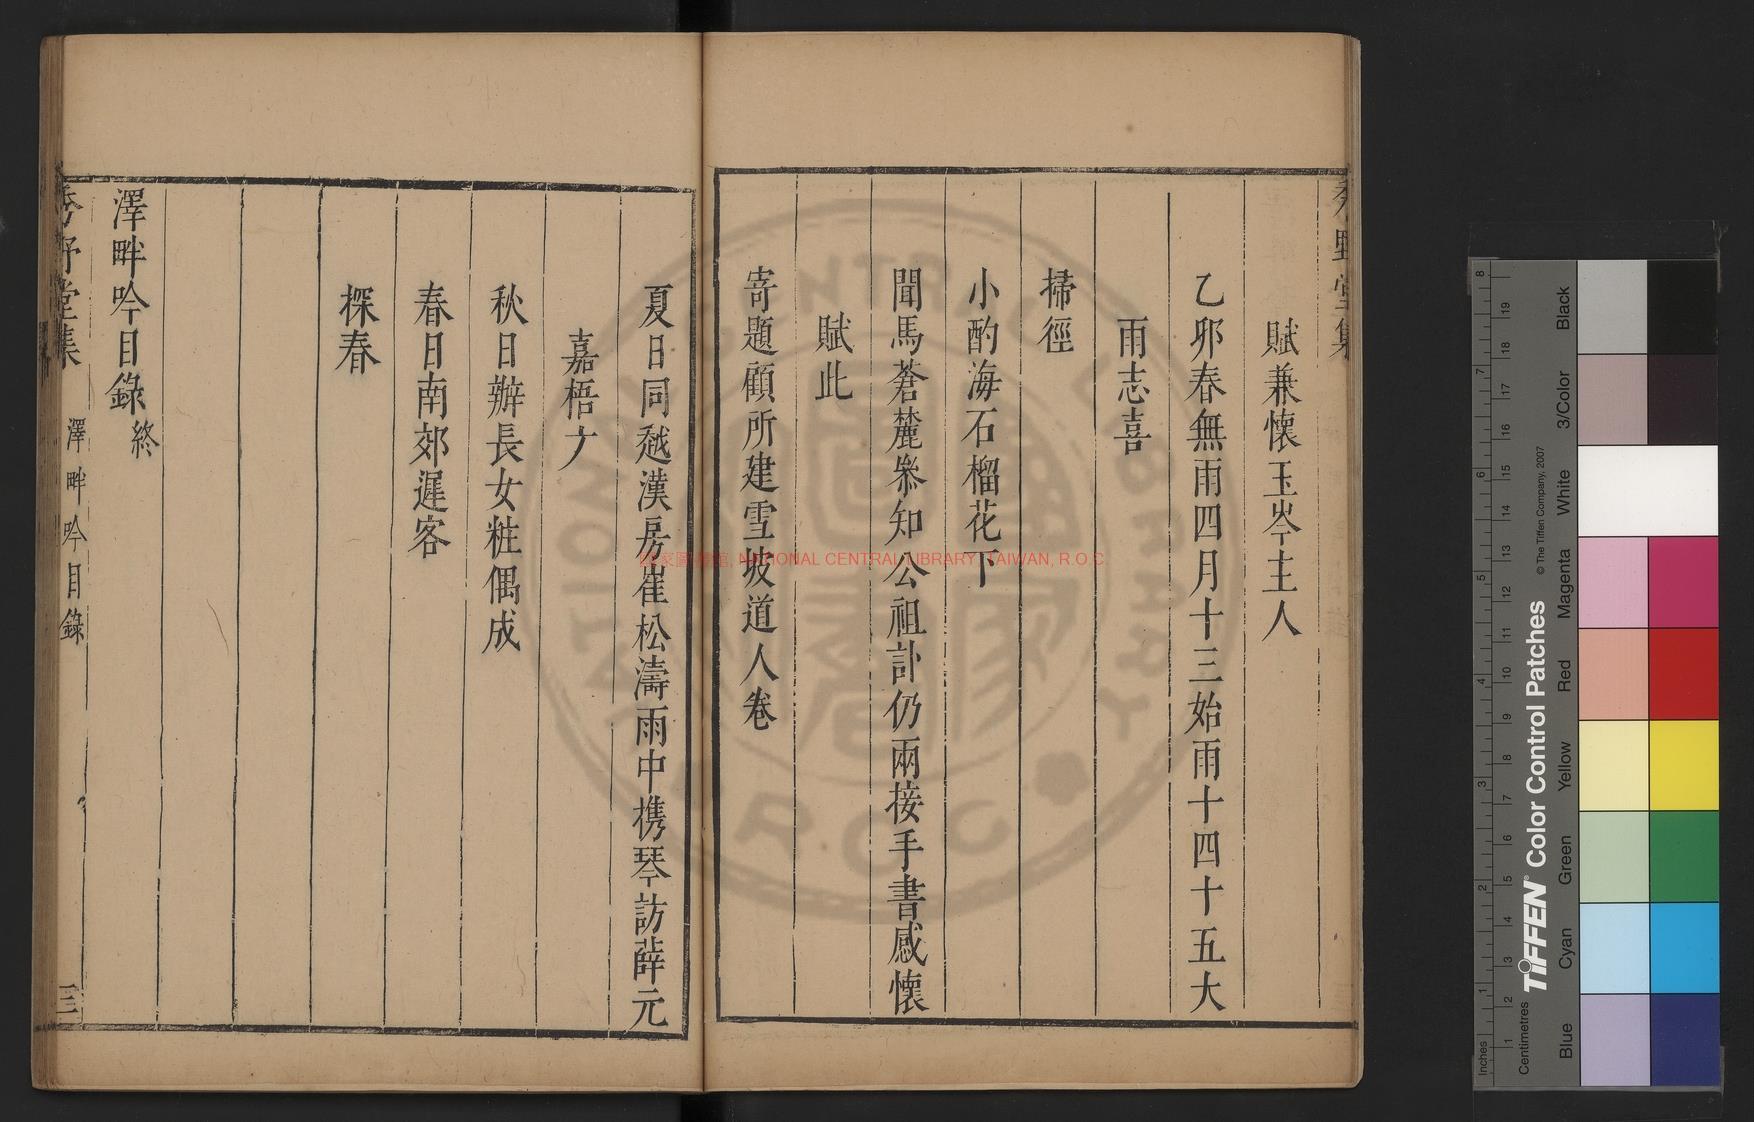 秀野堂集
賦兼懷玉岑主人
乙邜春無雨四月十三始雨十四十五大
雨志喜
掃徑
小酌海石榴花下
聞馬蒼麓叅知公祖訃仍兩接手書感懷
賦此
寄題顧所建雪坡道人卷
夏日同越漢房崔松濤雨中携琴訪薛元
嘉梧亣
秋日辦長女粧偶成
春日南郊遲客
探春
澤畔吟目錄終
秀野堂集 澤畔吟目錄 三
國家圖書館, NATIONAL CENTRAL LIBRARY, TAIWAN, R.O.C
Inches
Centimetres
TIFFEN® Color Control Patches
© The Tiffen Company, 2007
Blue
Cyan
Green
Yellow
Red
Magenta
White
3/Color
Black